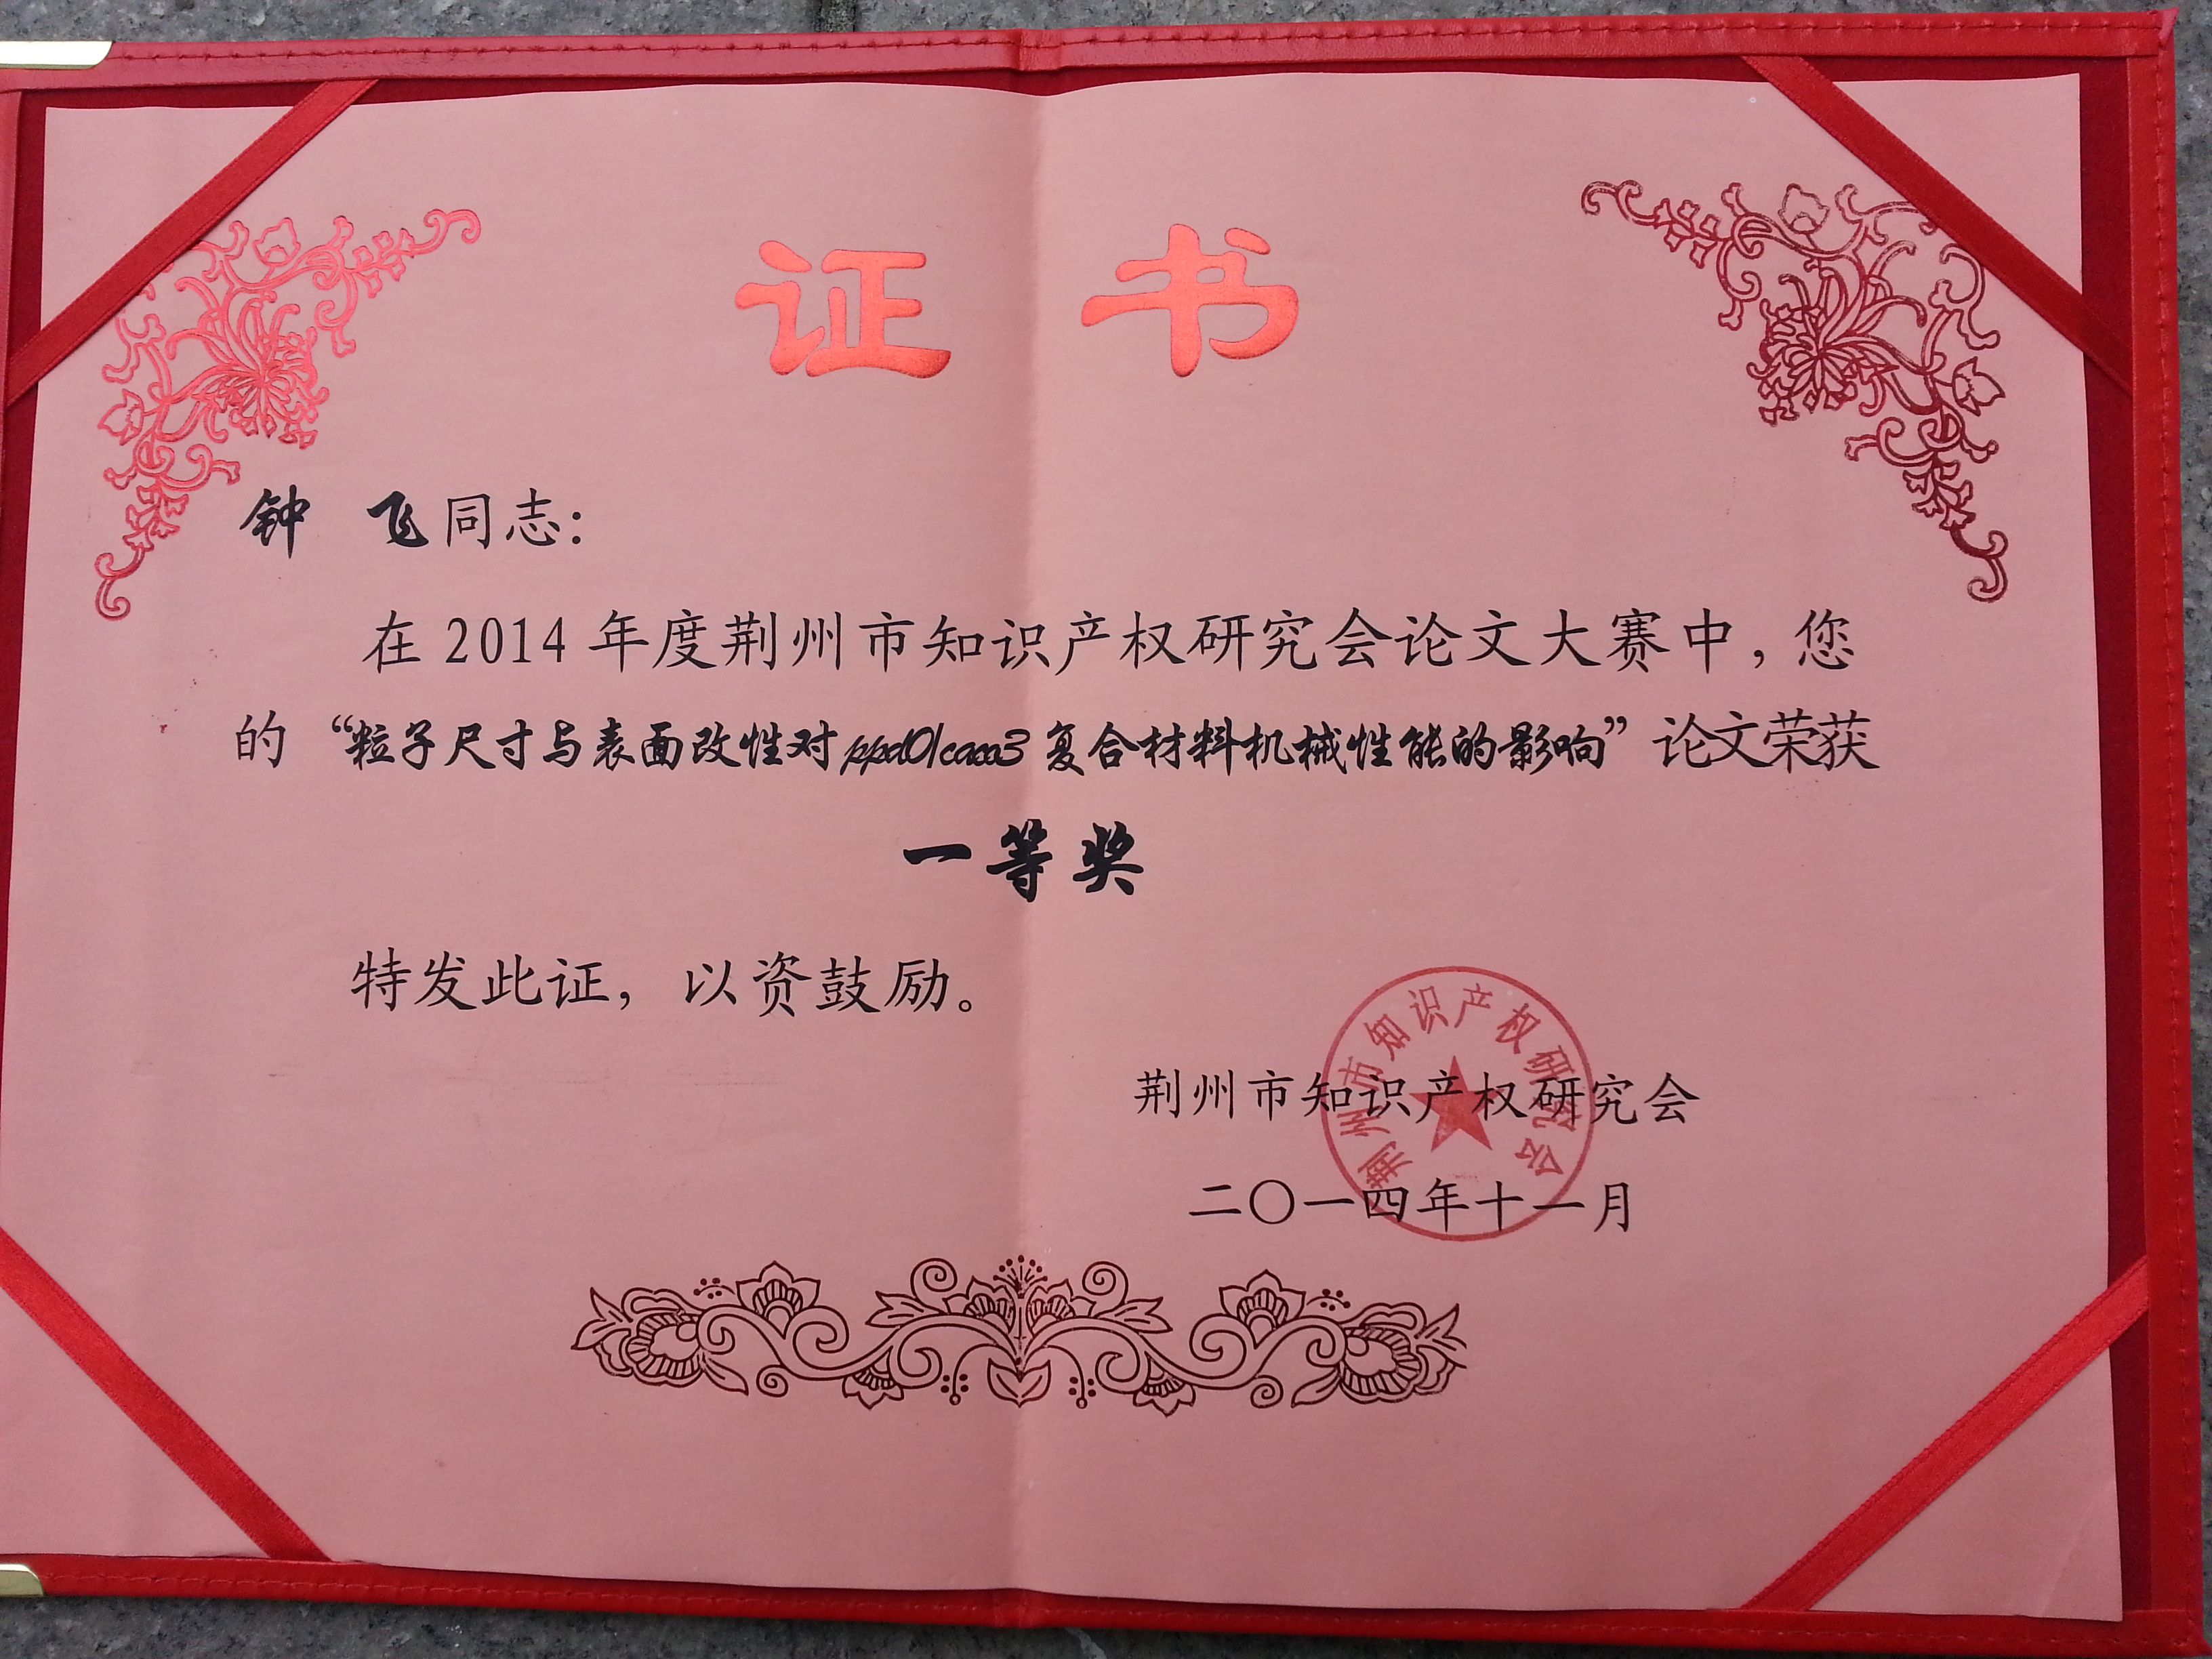 证书
钟 飞同志：
在2014年度荆州市知识产权研究会论文大赛中，您
的“粒子尺寸与表面改性对ppd01caco3复合材料机械性能的影响”论文荣获
一等奖
特发此证，以资鼓励。
荆州市知识产权研究会
二〇一四年十一月
荆州市知识产权研究会